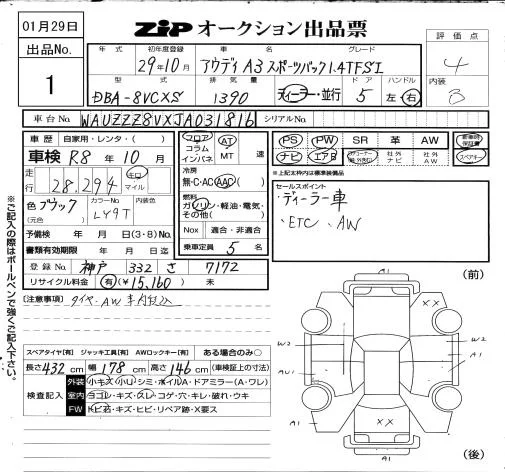 01月29日
ZiP オークション出品票
出品No.
1
年式 初年度登録 車名 グレード
29年10月 アウディ A3 スポーツバック1.4TFSI
評価点
4
型式 排気量 ドア ハンドル
DBA-8VCXS 1390 ディーラー・並行 5 左・右
内装
B
車台No. WAUZZZ8VXJA031816 シリアルNo.
車歴 自家用・レンタ・( )
車検 R8年10月
走行 28.294 キロ マイル
色 ブラック (元色) カラーNo. LY9T 内装色
予備検 年 月 日(3・8)No.
書類有効期限 年 月 日迄
登録No. 神戸 332 さ 7172
リサイクル料金 有(¥15,160) 未
フロア コラム インパネ AT MT 速
冷房 無・C・AC・AAC
燃料 ガソリン・軽油・電気・その他( )
Nox 適合・非適合
乗車定員 5 名
PS PW SR 革 AW 新車時保証書
ナビ エアB 社外ナビ 社外AW スペアキー
※上記太枠内は標準装備品
セールスポイント
・ディーラー車
・ETC、AW
[注意事項] タイヤ・AW 車内積込
スペアタイヤ[有] ジャッキ工具[有] AWロックキー[有] ある場合のみ〇
長さ432cm 幅178cm 高さ146cm (車検証上の寸法)
検査記入
外装 小キズ・小U・シミ・ボイルA・ドアミラー(A・ワレ)
室内 ヨゴレ・キズ・スレ・コゲ・穴・キレ・破れ・ウキ
FW トビ石・キズ・ヒビ・リペア跡・X要ス
※ご記入の際はボールペンで強くご記入下さい。
(前)
A1
XX
W2 W2
A1
AU1
A1
XX
A1 A1
(後)